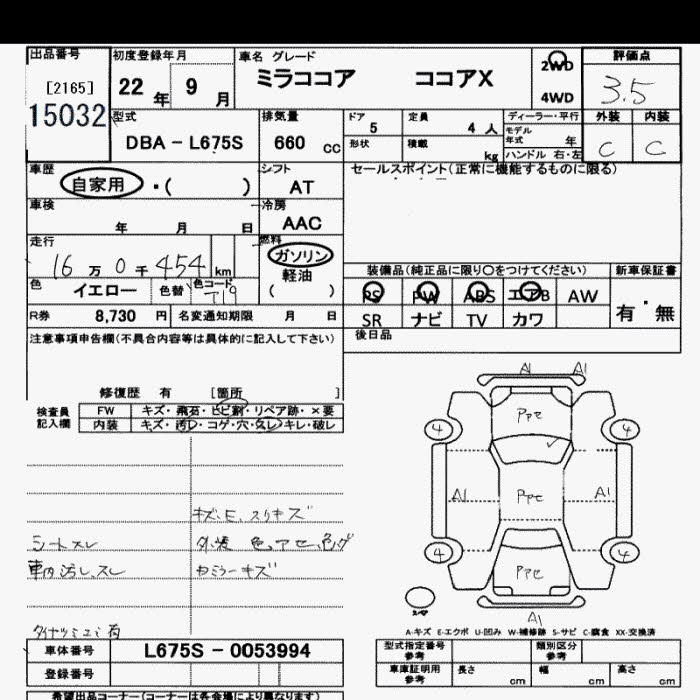 出品番号 初度登録年月 車名 グレード 評価点
[2165] 22年 9月 ミラココア ココアX 2WD 3.5
15032 4WD
型式 排気量 ドア 定員 ディーラー・平行 外装 内装
DBA - L675S 660 cc 5 4 人 モデル年式 年 C C
形状 積載 kg ハンドル 右・左
車歴 シフト セールスポイント(正常に機能するものに限る)
自家用 ・( ) AT
車検 冷房
年 月 日 AAC
走行 燃料
16万 0千 454 km ガソリン 装備品(純正品に限り○をつけてください) 新車保証書
軽油
色 イエロー 色替 色コード T19 ( ) PS PW ABS エアB AW 有・無
R券 8,730 円 名変通知期限 月 日 SR ナビ TV カワ
注意事項申告欄(不具合内容等は具体的に記入して下さい) 後日品
修復歴 有 [箇所 ]
検査員 FW キズ・飛石・ヒビ割・リペア跡・×要
記入欄 内装 キズ・汚レ・コゲ・穴・スレ・キレ・破レ
A1 A1
4 4
A1 A1
4 4
A1
キズ、E、スリキズ
シートスレ
車内汚レ、スレ
A-キズ E-エクボ U-凹み W-補修跡 S-サビ C-腐食 XX-交換済
車体番号 L675S - 0053994
登録番号
型式指定番号 参考 類別区分 参考
車庫証明用 参考 長さ cm 幅 cm 高さ cm
希望出品コーナー(コーナーは各会場により異なります)